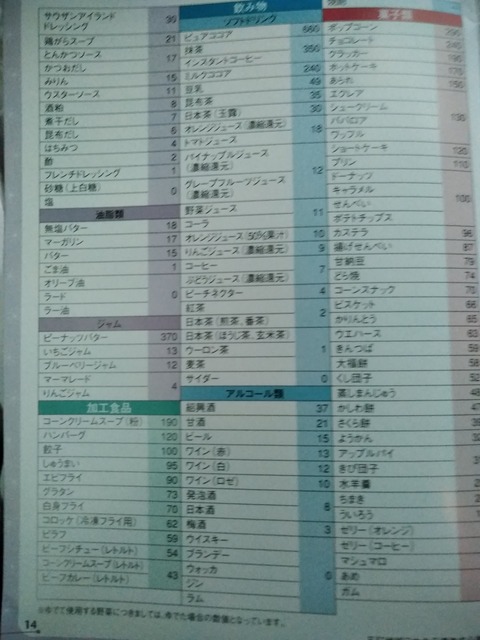 サウザンアイランド
ドレッシング 30
鶏がらスープ 21
とんかつソース
かつおだし 17
みりん 15
ウスターソース 11
酒粕 8
煮干だし 7
昆布だし 6
はちみつ 4
酢 2
フレンチドレッシング 1
砂糖（上白糖） 0
塩
油脂類
無塩バター 18
マーガリン 17
バター 15
ごま油 1
オリーブ油
ラード 0
ラー油
ジャム
ピーナッツバター 370
いちごジャム 13
ブルーベリージャム 12
マーマレード 4
りんごジャム
加工食品
コーンクリームスープ（粉） 190
ハンバーグ 120
餃子 100
しゅうまい 95
エビフライ 90
グラタン 73
白身フライ 70
コロッケ（冷凍フライ用） 62
ピラフ 59
ビーフシチュー（レトルト） 54
コーンクリームスープ（レトルト） 43
ビーフカレー（レトルト）
飲み物
ソフトドリンク
ピュアココア 560
抹茶 350
インスタントコーヒー
ミルクココア 240
豆乳 49
昆布茶 35
日本茶（玉露） 30
オレンジジュース（濃縮還元） 18
トマトジュース
パイナップルジュース
（濃縮還元） 12
グレープフルーツジュース
（濃縮還元）
野菜ジュース 11
コーラ
オレンジジュース（50%果汁） 10
りんごジュース（濃縮還元） 9
コーヒー 7
ぶどうジュース（濃縮還元）
ピーチネクター 4
紅茶 2
日本茶（煎茶、番茶）
日本茶（ほうじ茶、玄米茶）
ウーロン茶 1
麦茶
サイダー 0
アルコール類
紹興酒 37
甘酒 21
ビール 15
ワイン（赤） 13
ワイン（白） 12
ワイン（ロゼ） 10
発泡酒
日本酒 8
梅酒 3
ウイスキー
ブランデー
ウォッカ 0
ジン
ラム
菓子類
ポップコーン 290
チョコレート 240
クラッカー
ホットケーキ 170
あられ
エクレア
シュークリーム
ババロア
ワッフル
ショートケーキ 120
プリン 110
ドーナッツ
キャラメル
せんべい 100
ポテトチップス
カステラ 96
揚げせんべい 87
甘納豆 79
どら焼 74
コーンスナック 70
ビスケット 66
かりんとう 65
ウエハース 63
きんつば 59
大福餅 58
くし団子
蒸しまんじゅう
かしわ餅
さくら餅
ようかん
アップルパイ
きび団子
水羊羹
ちまき
ういろう
ゼリー（オレンジ）
ゼリー（コーヒー）
マシュマロ
あめ
ガム
※ゆでて使用する野菜につきましては、ゆでた場合の数値となっています。
14